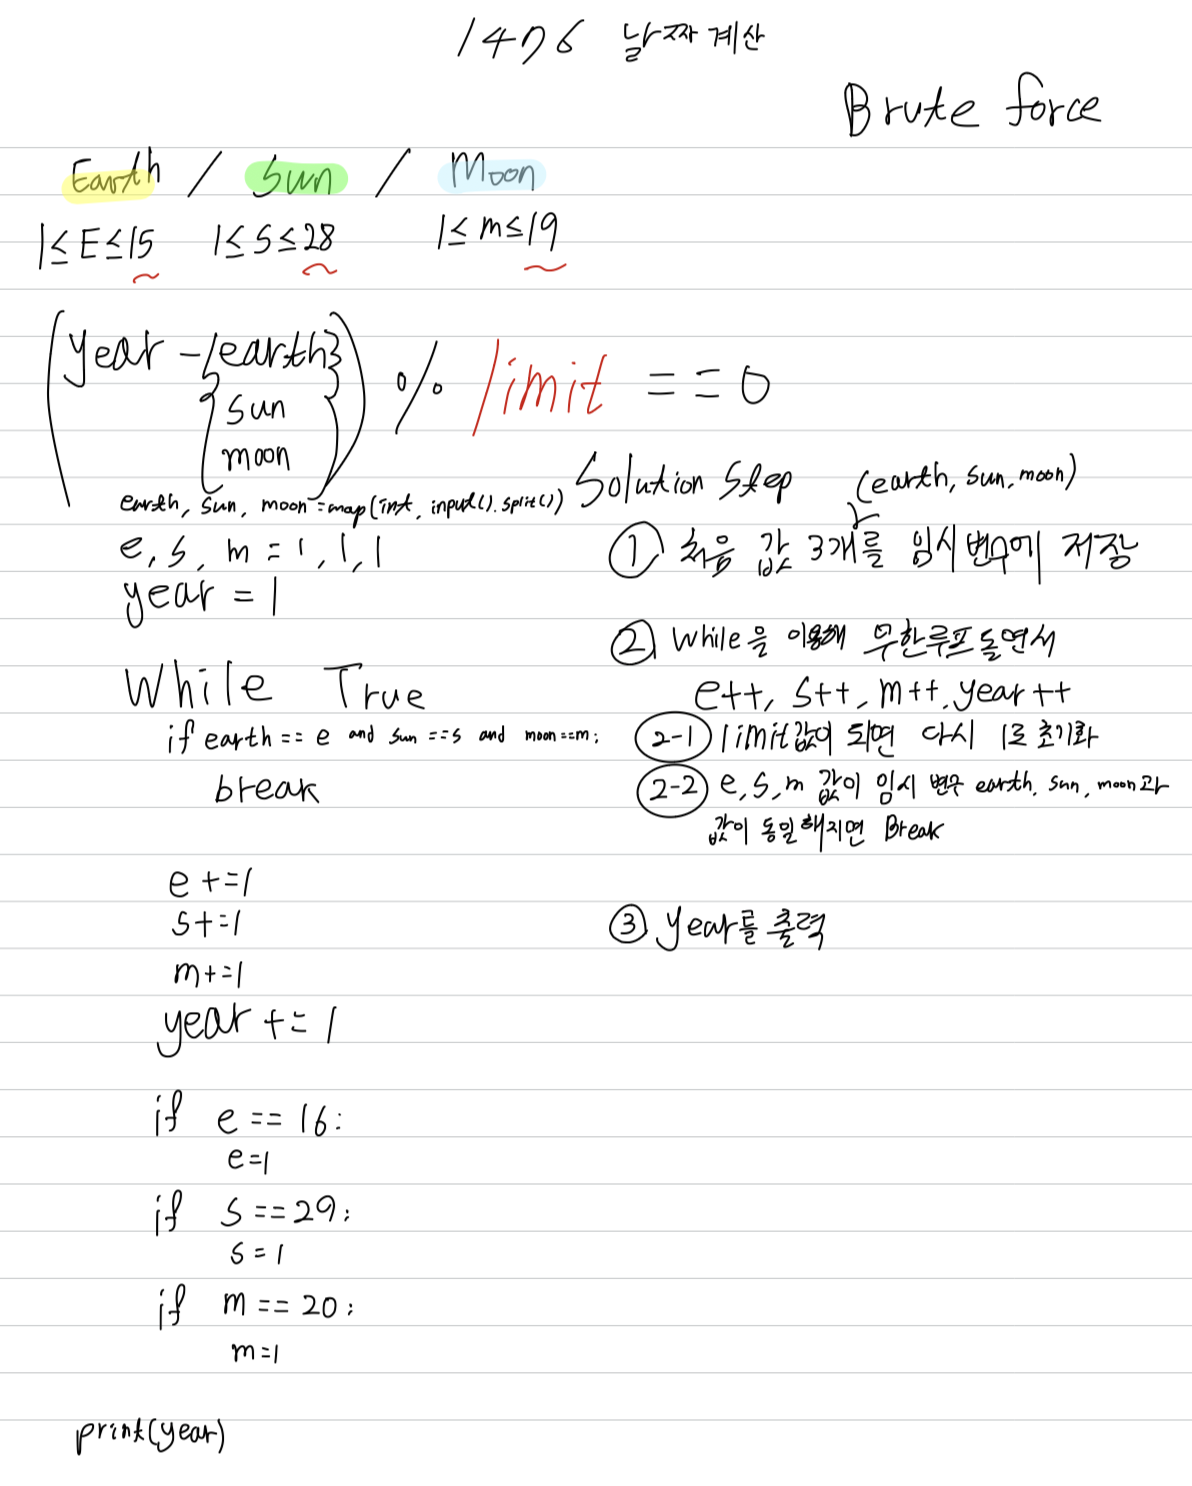 1476 날짜 계산
Brute force
Earth / Sun / Moon
1≤E≤15 1≤S≤28 1≤m≤19
(year -{earth}) % limit == 0
sun
moon
earth, sun, moon =map(int, input().split())
e, s, m = 1, 1, 1
year = 1
While True
if earth == e and sun ==s and moon==m:
break
e +=1
s+=1
m+=1
year += 1
if e == 16:
e=1
if s ==29:
s=1
if m == 20:
m=1
print(year)
Solution Step (earth, sun, moon)
① 처음 값 3개를 임시변수에 저장
② While을 이용해 무한루프 돌면서
e++, s++, m++, year ++
2-1 limit값이 되면 다시 1로 초기화
2-2 e, s, m 값이 임시 변수 earth, sun, moon과
값이 동일해지면 Break
③ year를 출력